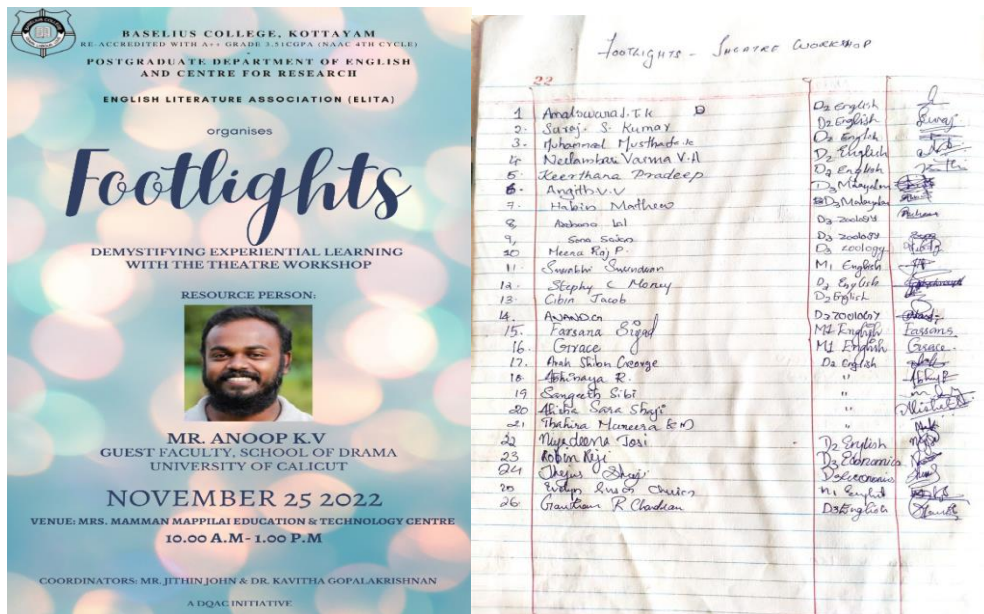 BASELIUS COLLEGE, KOTTAYAM
RE-ACCREDITED WITH A++ GRADE 3.51CGPA (NAAC 4TH CYCLE)
POSTGRADUATE DEPARTMENT OF ENGLISH
AND CENTRE FOR RESEARCH
ENGLISH LITERATURE ASSOCIATION (ELITA)
organises
Footlights
DEMYSTIFYING EXPERIENTIAL LEARNING
WITH THE THEATRE WORKSHOP
RESOURCE PERSON:
MR. ANOOP K.V
GUEST FACULTY, SCHOOL OF DRAMA
UNIVERSITY OF CALICUT
NOVEMBER 25 2022
VENUE: MRS. MAMMAN MAPPILAI EDUCATION & TECHNOLOGY CENTRE
10.00 A.M- 1.00 P.M
COORDINATORS: MR. JITHIN JOHN & DR. KAVITHA GOPALAKRISHNAN
A DQAC INITIATIVE
FOOTLIGHTS - THEATRE WORKSHOP
22
1 D2 English
2. Suraj. S. Kumar D2 English Suraj
3. Muhammed Musthafa D2 English
4. Neelambar Varma V.A D2 English
5. Keerthana Pradeep D2 English
6. Angith V.V D3 Malayalam
7. Habin Mathew D3 Malayalam
8. Archana Lal D3 Zoology Archana
9. Sona D3 Zoology
10 Meera Raj P. D3 Zoology
11. M1 English
12. Stephy C D2 English
13. Cibin Jacob D2 English
14. D2 Zoology
15. Farsana M1 English Farsana
16. Grace M1 English Grace
17. Shibu George D2 English
18 Abhinaya R. "
19 Sangeeth Sibi "
20 Alisha Sara Shaji " Alisha
21 Thahira "
22 D2 English
23 Robin Reji D3 Economics
24 Thejus Shaji D3 Economics
M1 English
26. Gautham R D3 English